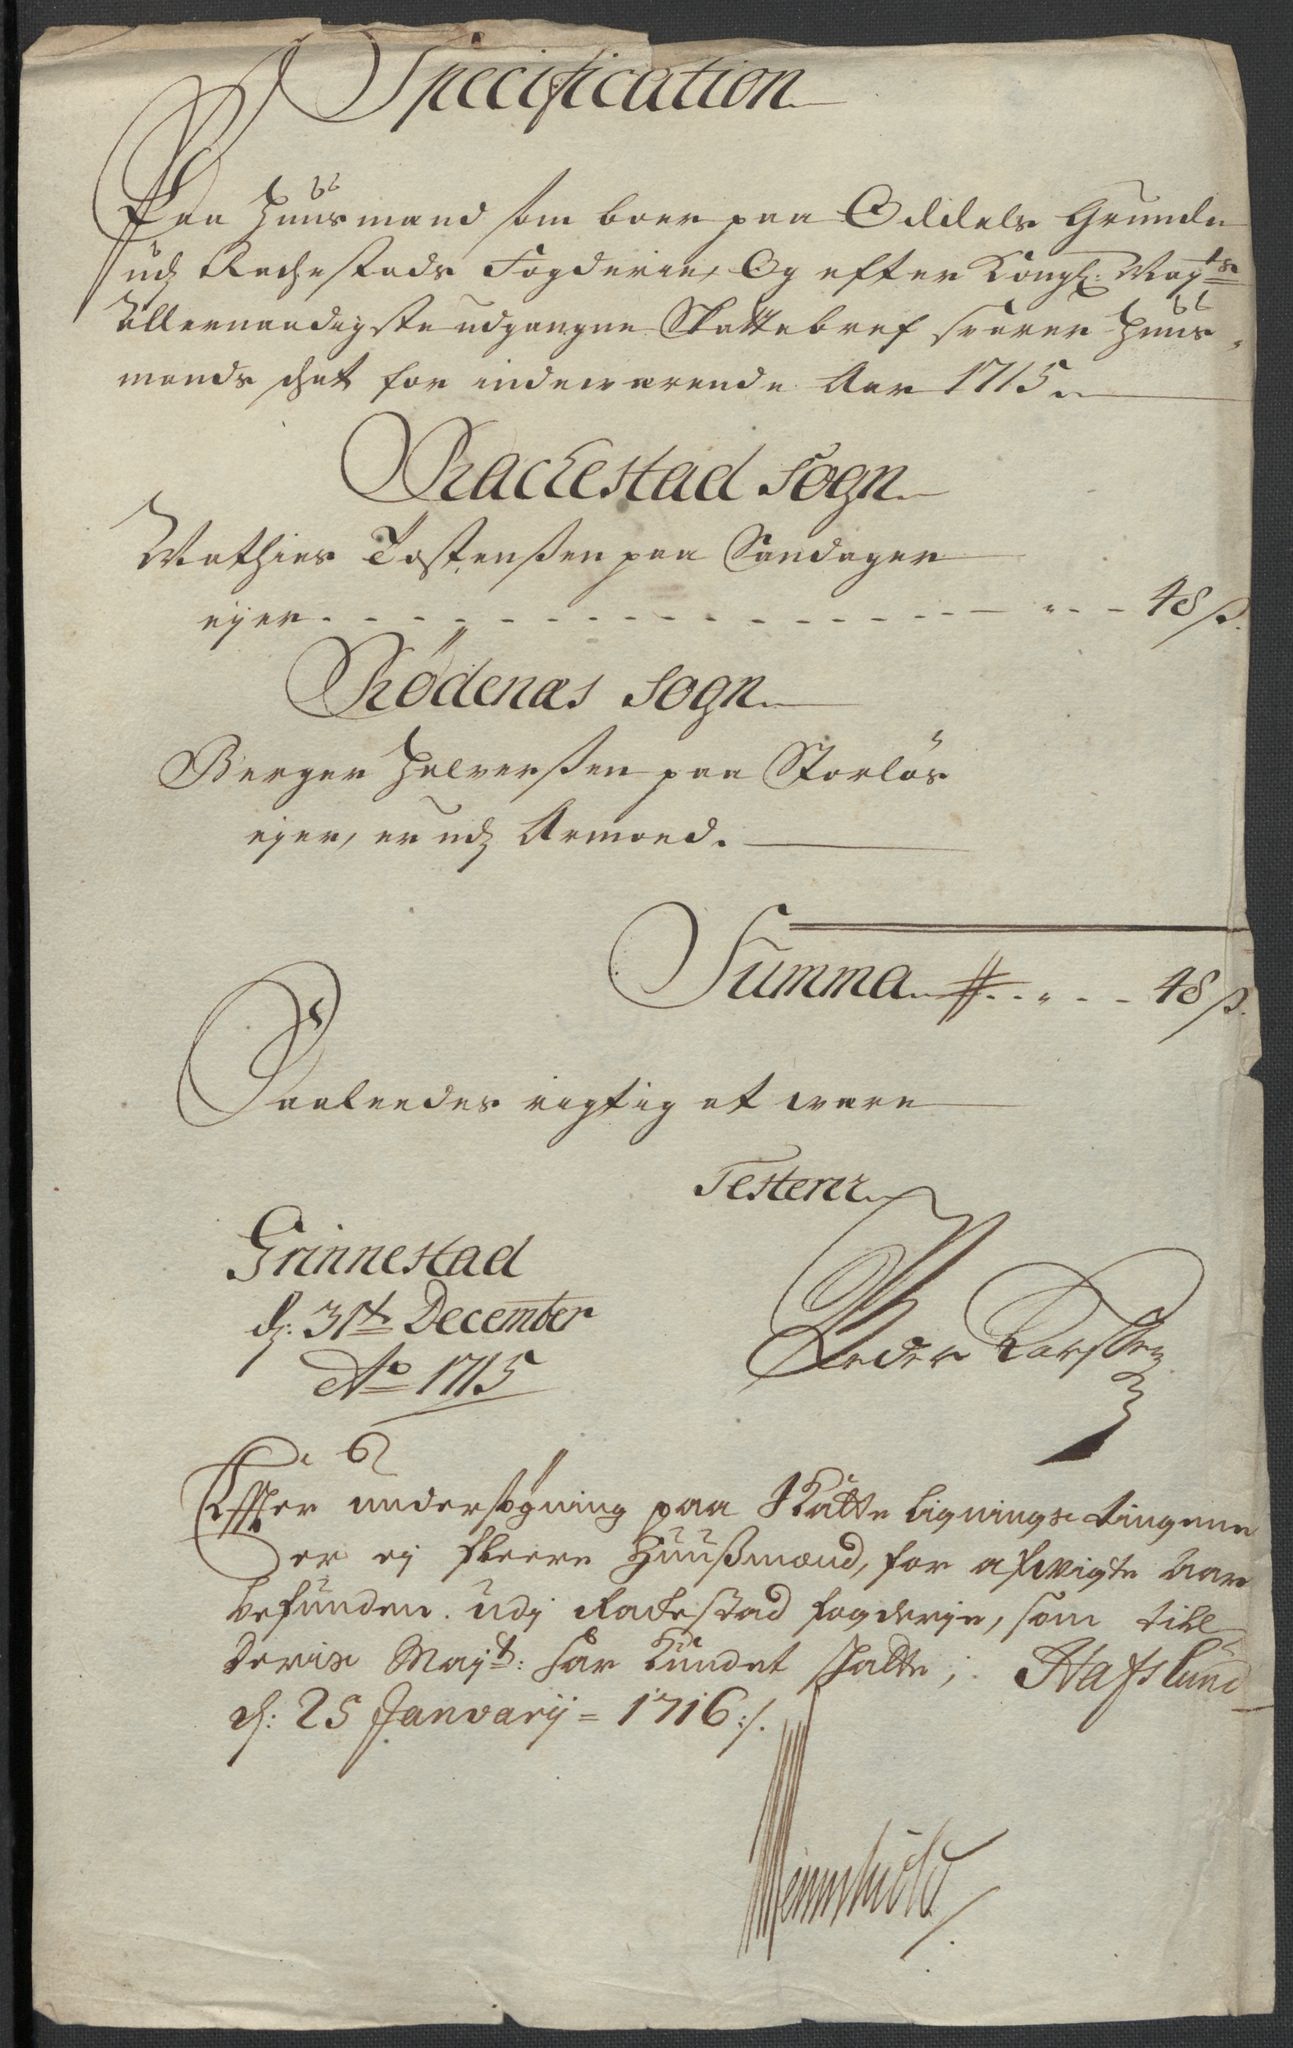 Specification
Paa Huusmænd som boer paa Oddels Grunde
udj Rachestads Fogderie, Og efter Kongl: Mayts
allernaadigste udgangne Skattebref svarer Huus-
mands schat for indeværende Aar 1715
Rackestad Sogn
Mathies Tostenßen paa Sandager
ejer - - - 48 ß.
Rødenæs Sogn
Berger Halverßen paa Storløs
ejer, er udj Armoed.
Summa - - - 48 ß.
Saaleedes rigtig at være
Testerer
Grinnestad
d: 31te December
Ao 1715
Peder Larssen
Effter undersøgning paa Skatte Lignings tingene
er ej fleere Huußmænd, for afwigte Aar
befunden udj Rackestad fogderje, som till
Deris Mayt: har kundet skatte; Hafslund
d: 25 Januarij = 1716 :/.